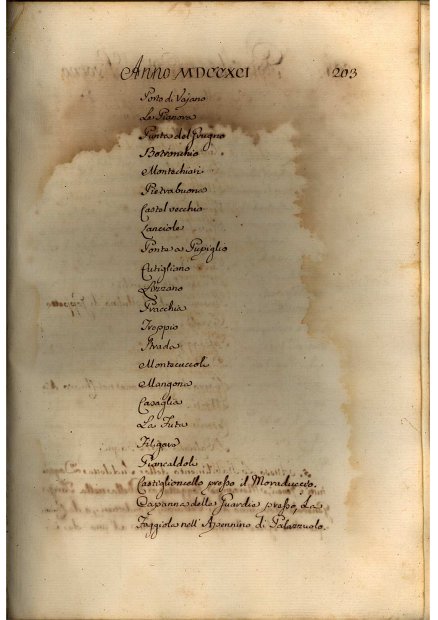 Anno MDCCXCI 203
Porto di Vajano
La Pianora
Punta del Grugno
Botronchio
Montechiari
Pietrabuona
Castel vecchio
Lanciole
Ponte a Pupiglio
Cutigliano
Lizzano
Pracchia
Treppio
Strada
Montecuccoli
Mangona
Cavaglia
La Futa
Filigare
Piancaldoli
Castiglioncello presso il Moraduccio.
Capanna della Guardia presso, La
Faggiola nell'Apennino di Palazzuolo.